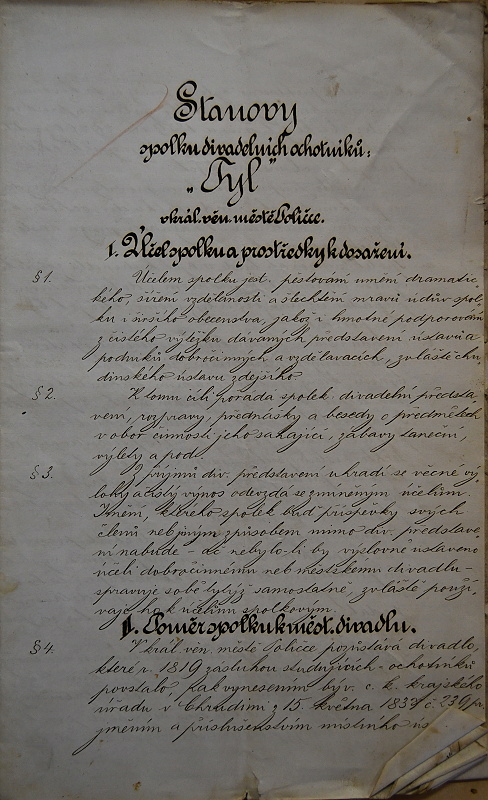 Stanovy
spolku divadelních ochotníků:
„Tyl“
v král. věn. městě Poličce.
I. Účel spolku a prostředky k dosažení.
§ 1. Účelem spolku jest: pěstování umění dramatic-
kého, šíření vzdělanosti a šlechtění mravů údův spol-
ku i širšího obecenstva, jakož i hmotné podporování
z čistého výtěžku dávaných představení ústavů a
podniků dobročinných a vzdělavacích, zvláště chu-
dinského ústavu zdejšího.
§ 2. K tomu cíli pořádá spolek divadelní předsta-
vení, rozpravy, přednášky a besedy o předmětech
v obor činnosti jeho sahající, zábavy taneční,
výlety a pod.
§ 3. Z příjmů div. představení uhradí se věcné vý-
lohy a čistý výnos odevzdá se zmíněným účelům.
Jmění, kterého spolek buď příspěvky svých
členů neb jiným způsobem mimo div. představe-
ní nabude – ač nebylo-li by výslovně ustaveno
účeli dobročinnému neb městskému divadlu –
spravuje sobě týlýž samostatně, zvláště použí-
vaje ho k účelům spolkovým.
II. Poměr spolku k měst. divadlu.
§ 4. V král. věn. městě Poličce pozůstává divadlo,
které r. 1819 zásluhou studujících - ochotníků
povstalo, pak vynesením býv. c. k. krajského
úřadu v Chrudimi z 15. května 1833 č.
jměním a příslušenstvím místního